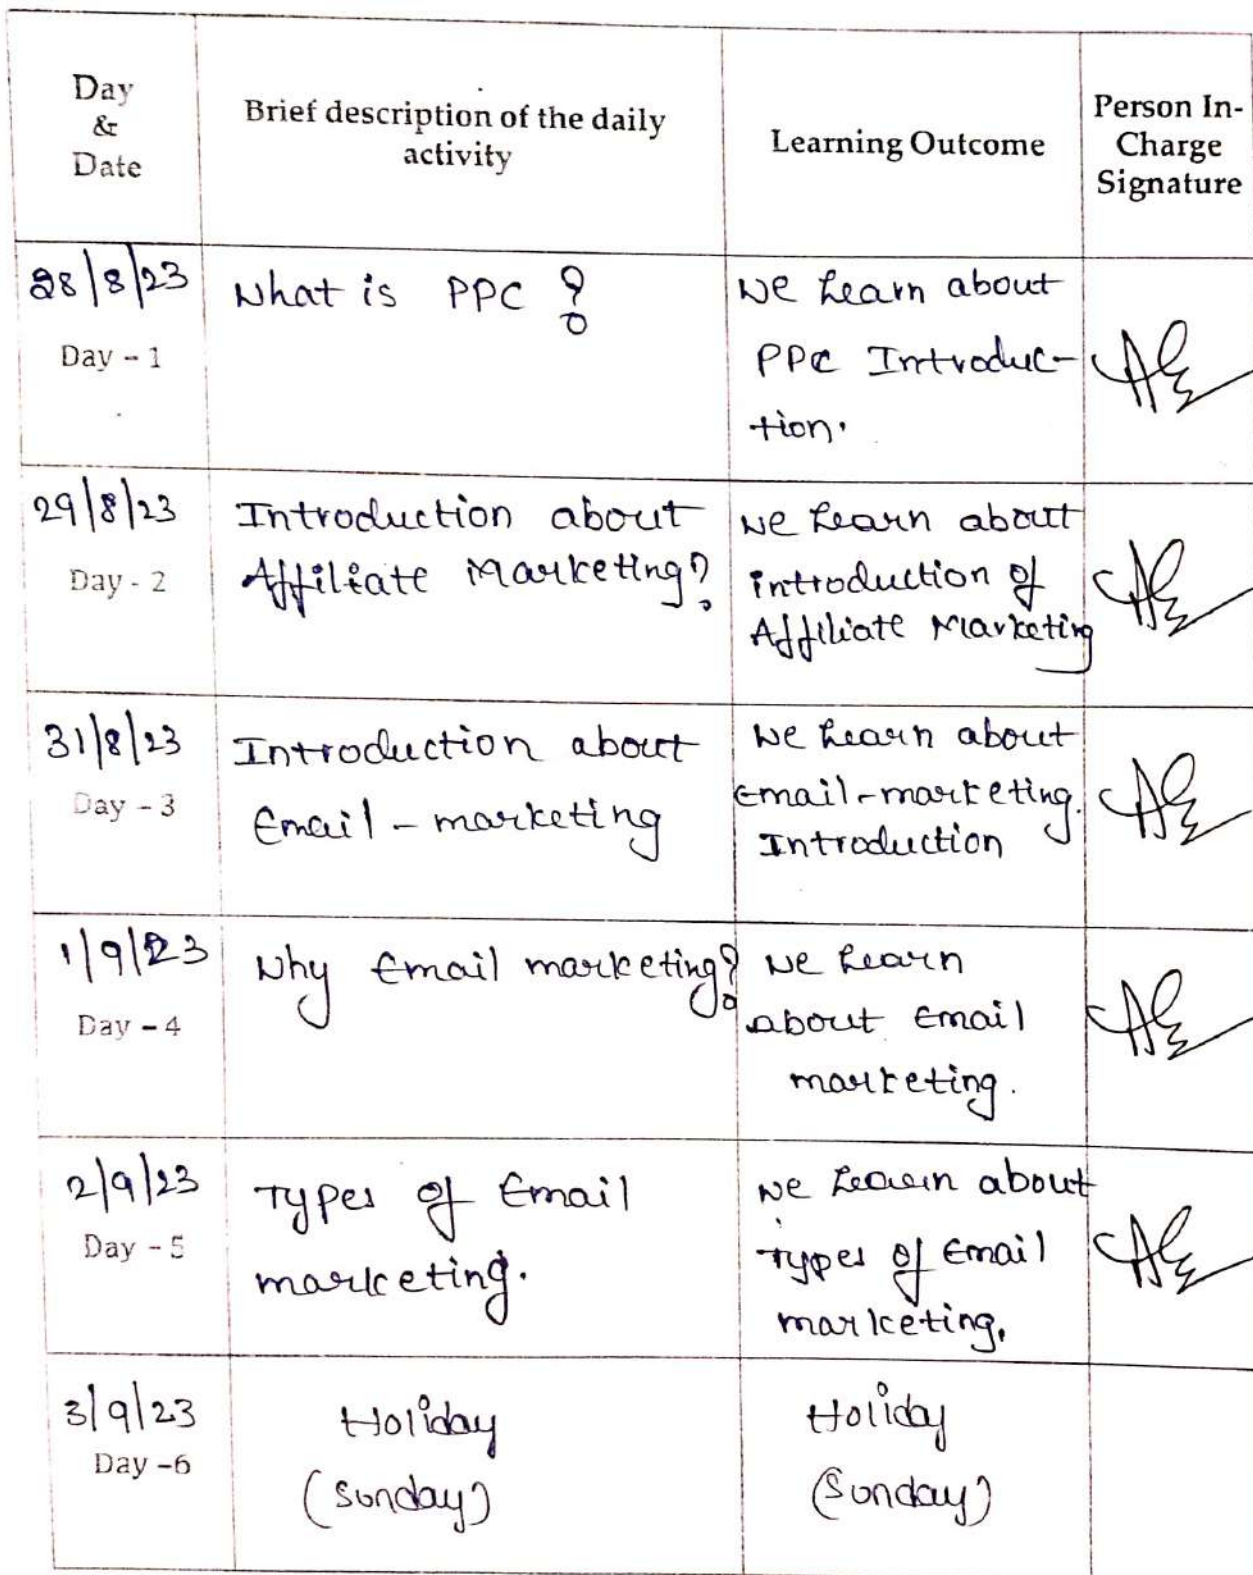 Day
&
Date
Brief description of the daily
activity
Learning Outcome
Person In-
Charge
Signature
28/8/23
Day - 1
What is PPC ?
We Learn about
PPC Introduc-
tion.
29/8/23
Day - 2
Introduction about
Affiliate Marketing?
We Learn about
introduction of
Affiliate Marketing
31/8/23
Day - 3
Introduction about
Email - marketing
We Learn about
Email-marketing.
Introduction
1/9/23
Day - 4
Why Email marketing?
We Learn
about Email
marketing.
2/9/23
Day - 5
Types of Email
marketing.
We Learn about
Types of Email
marketing.
3/9/23
Day -6
Holiday
(Sunday)
Holiday
(Sunday)